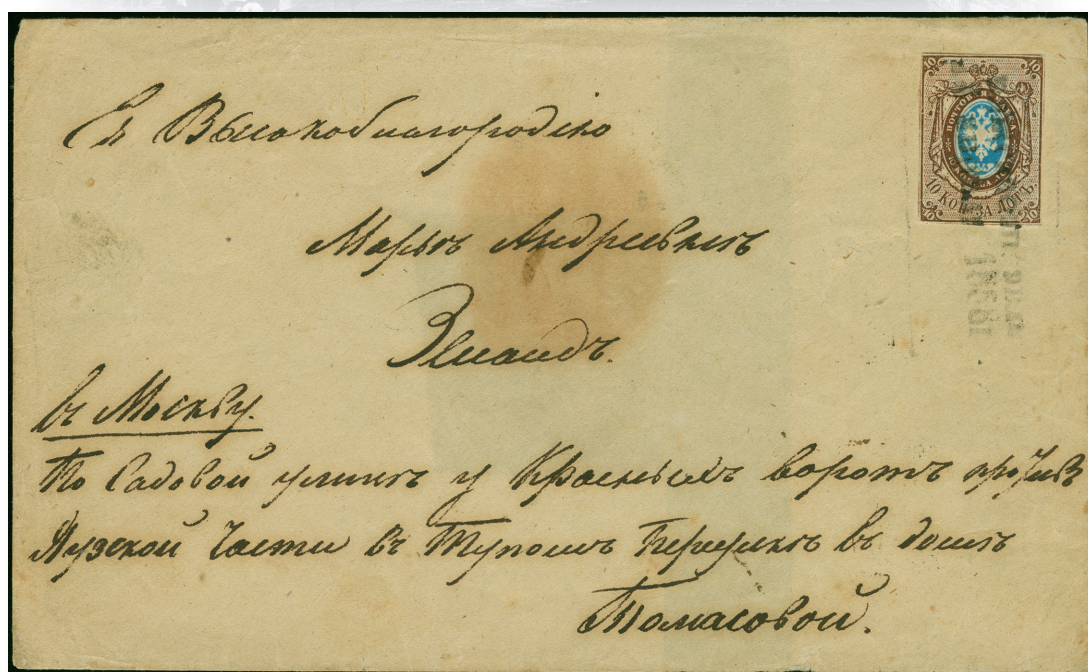 Ея Высокоблагородію
Марьѣ Андреевнѣ
въ Москву.
По Садовой улицѣ у Красныхъ воротъ противъ
Яузской Части въ Тупомъ Переулкѣ въ домѣ
Томасовой.
10 10
ПОЧТОВАЯ МАРКА
10 КОП. ЗА ЛОТЪ.
10 10